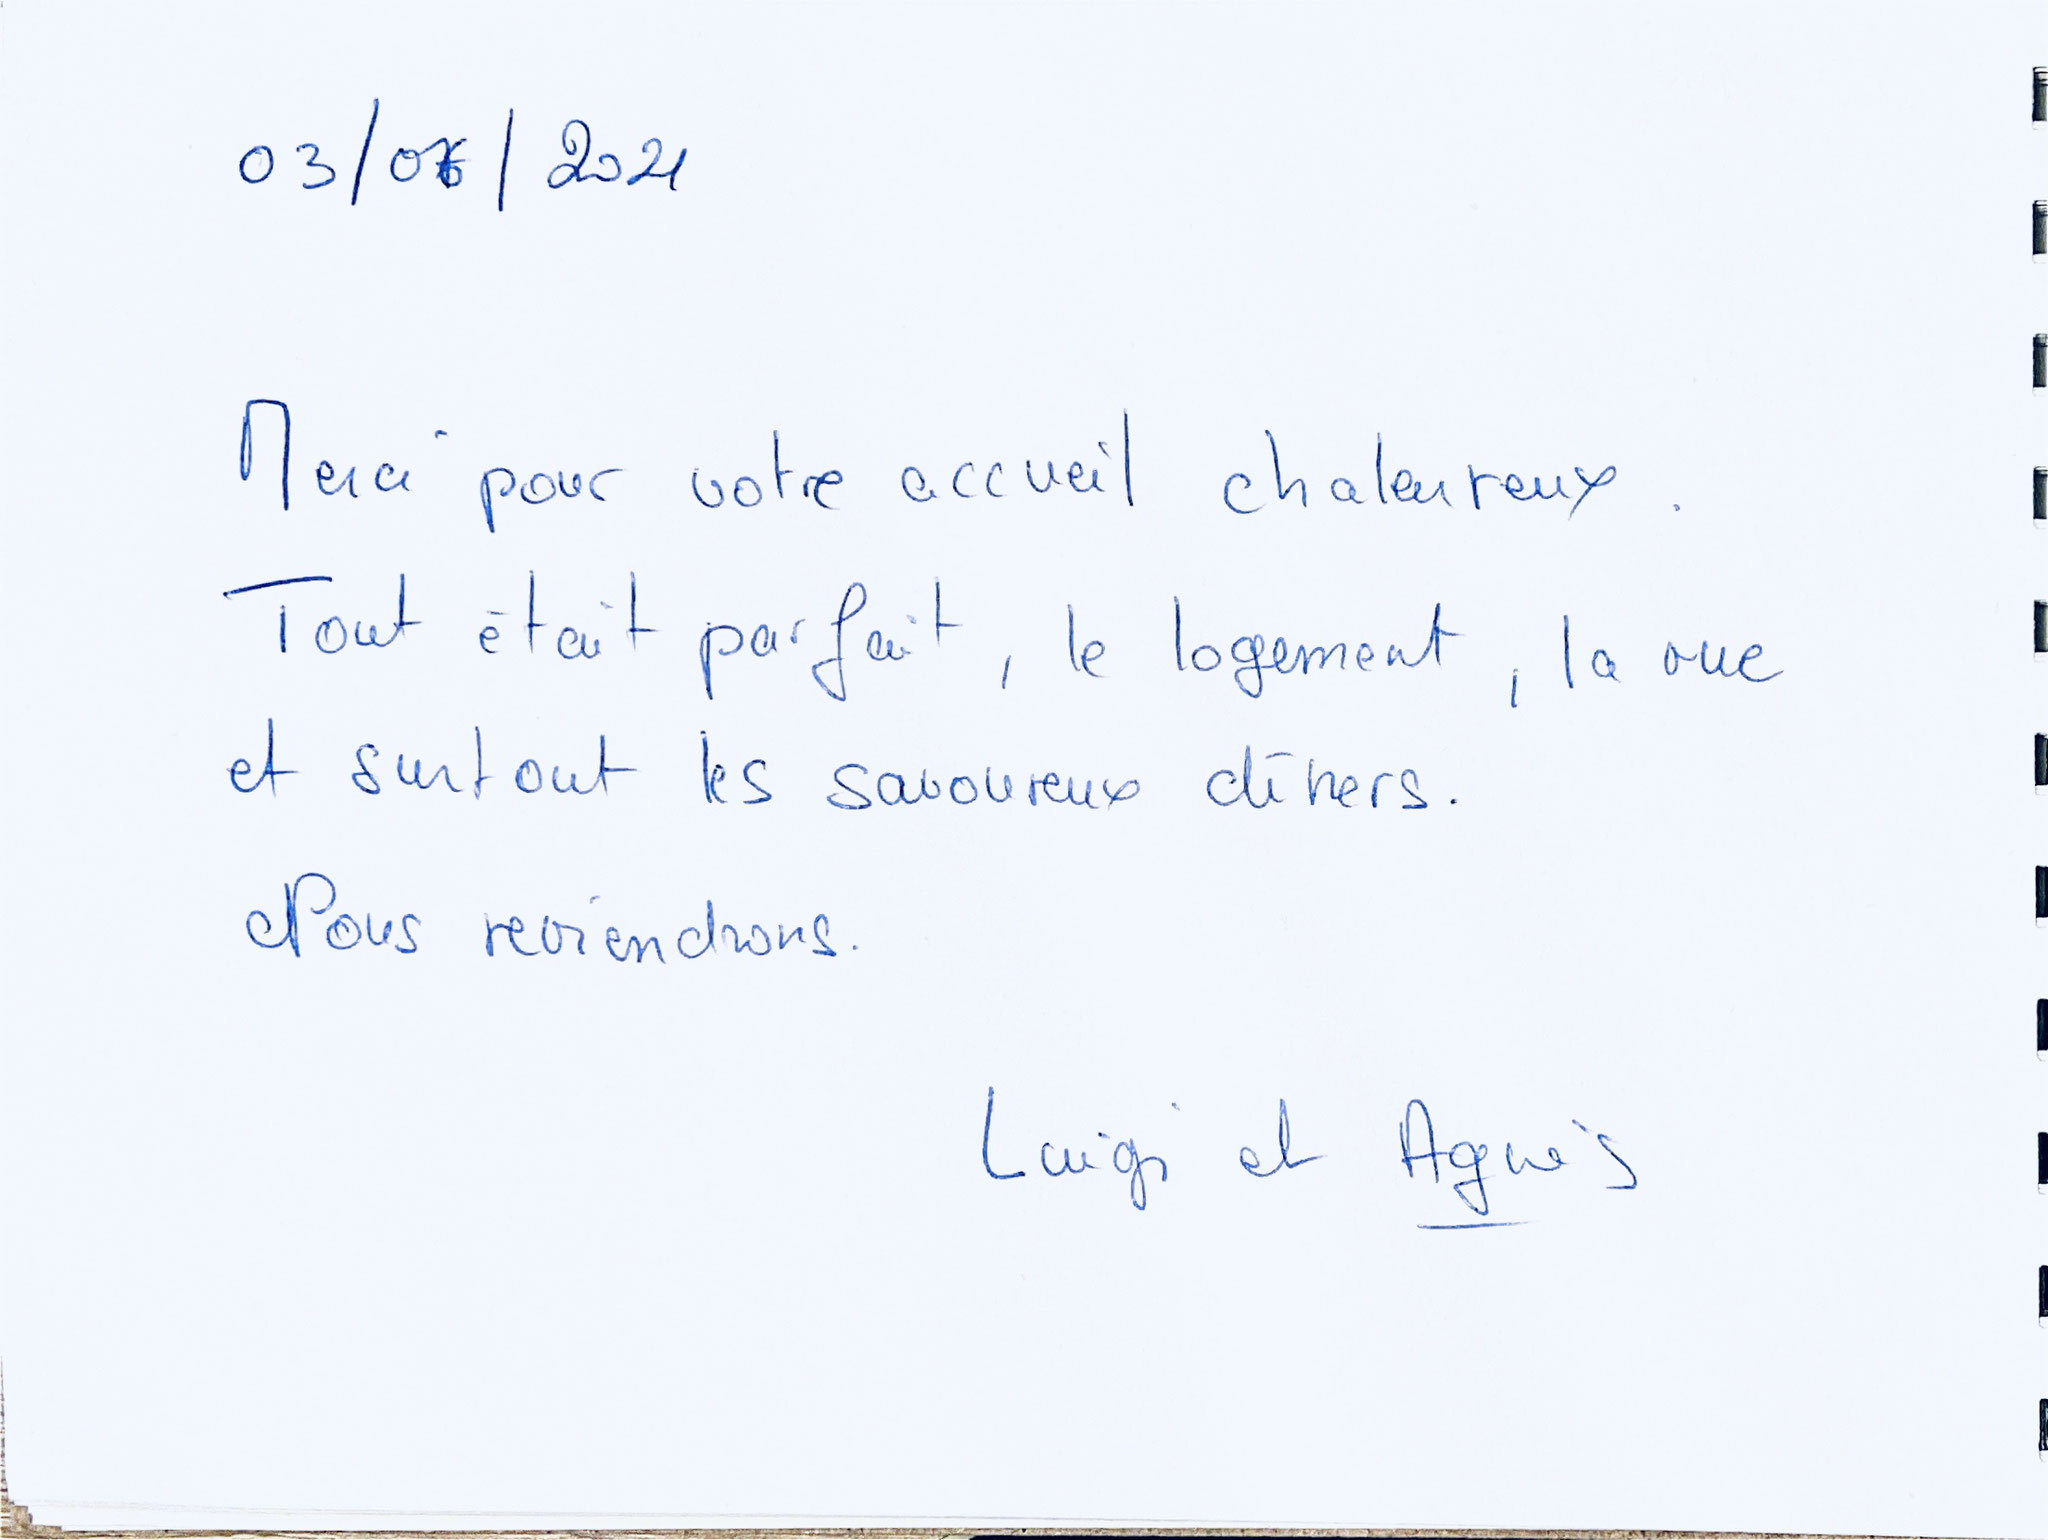 03/06/2021
Merci pour votre accueil chaleureux.
Tout était parfait, le logement, la vue
et surtout les savoureux dîners.
Nous reviendrons.
Luigi et Agnès